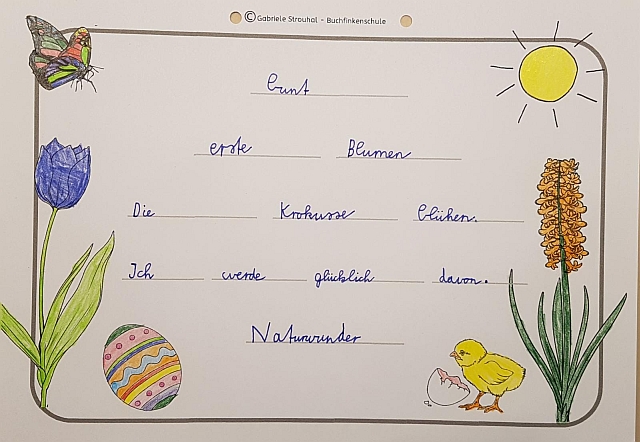 © Gabriele Strouhal - Buchfinkenschule
bunt
erste Blumen
Die Krokusse blühen.
Ich werde glücklich davon.
Naturwunder